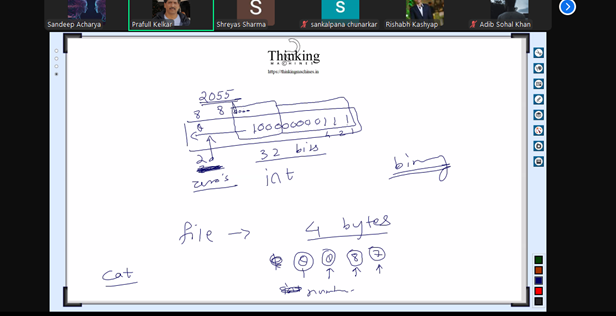 Sandeep Acharya
Prafull Kelkar
Shreyas Sharma
sankalpana chunarkar
Rishabh Kashyap
Adib Sohal Khan
S
S
Thinking
MACHINES
https://thinkingmachines.in
2055
8 8
0 100000000111
4 2 1
20 32 bits
zero's int
binary
file → 4 bytes
0 0 8 7
cat